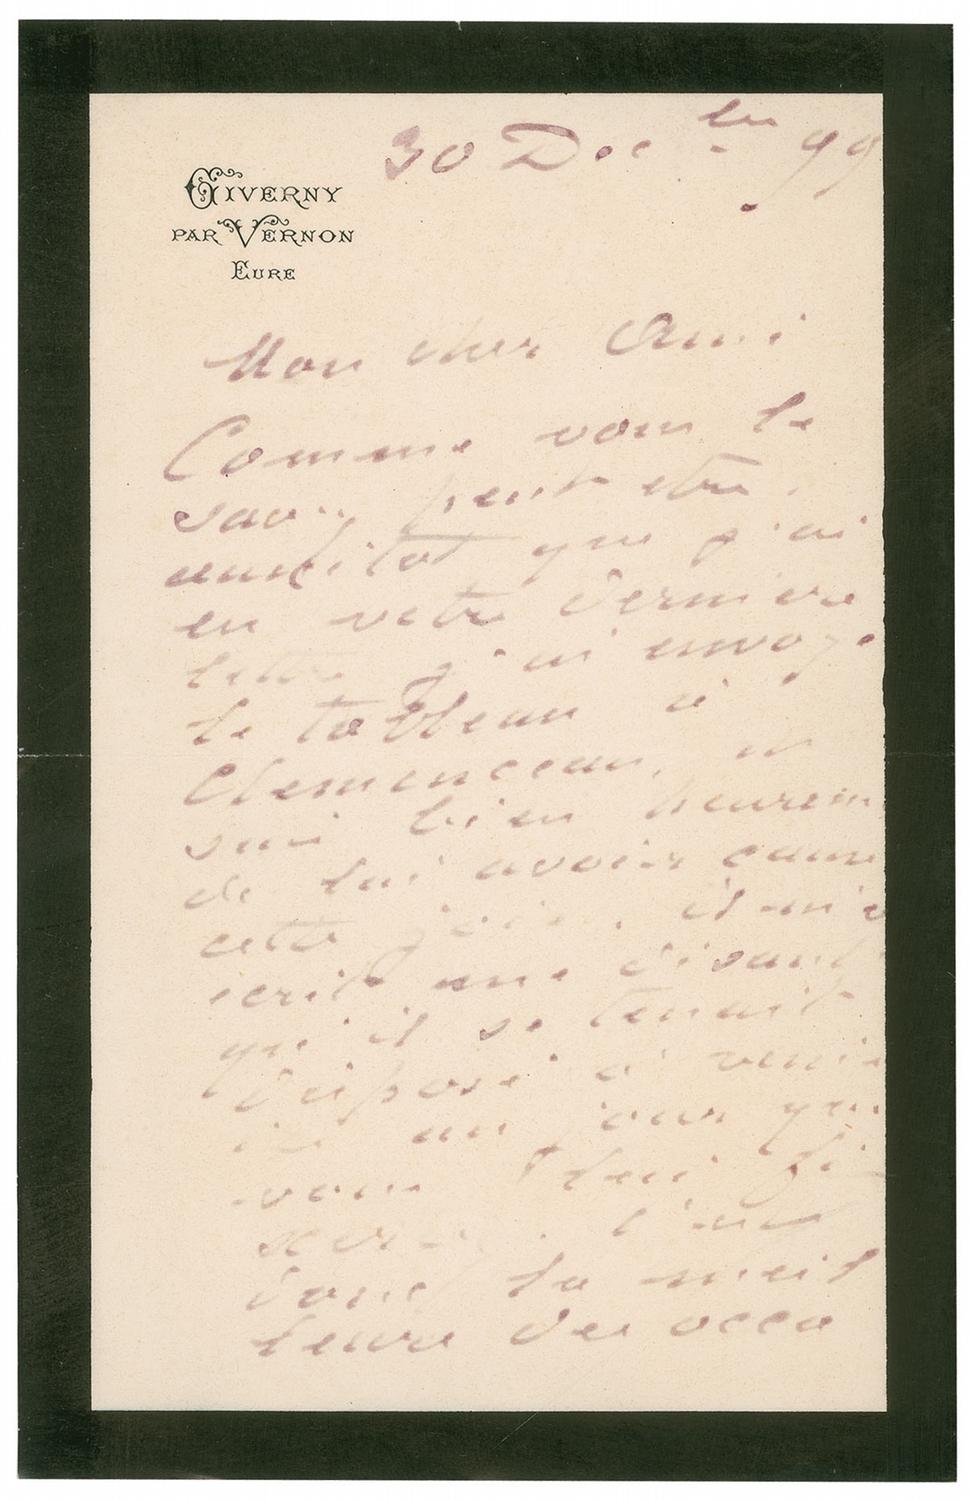 30 Dec bre 99
GIVERNY
PAR VERNON
EURE
Mon cher Ami
Comme vous le
savez peut etre,
aussitot que j'ai
eu votre derniere
lettre j'ai envoyé
le tableau à
Clemenceau, je
suis bien heureux
de lui avoir causé
cette joie. il m'a
écrit une disant
qu'il se tenait
disposé à venir
ici un jour que
vous lui fi
xerez. C'est
donc la meil
leure des occa